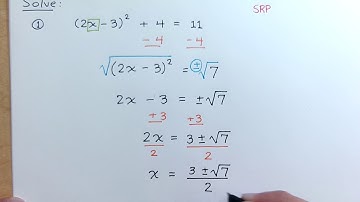 Solve:
SRP
① (2x-3)² + 4 = 11
-4 -4
√(2x-3)² = ±√7
2x - 3 = ±√7
+3 +3
2x = 3 ± √7
2 2
x = 3 ± √7
2